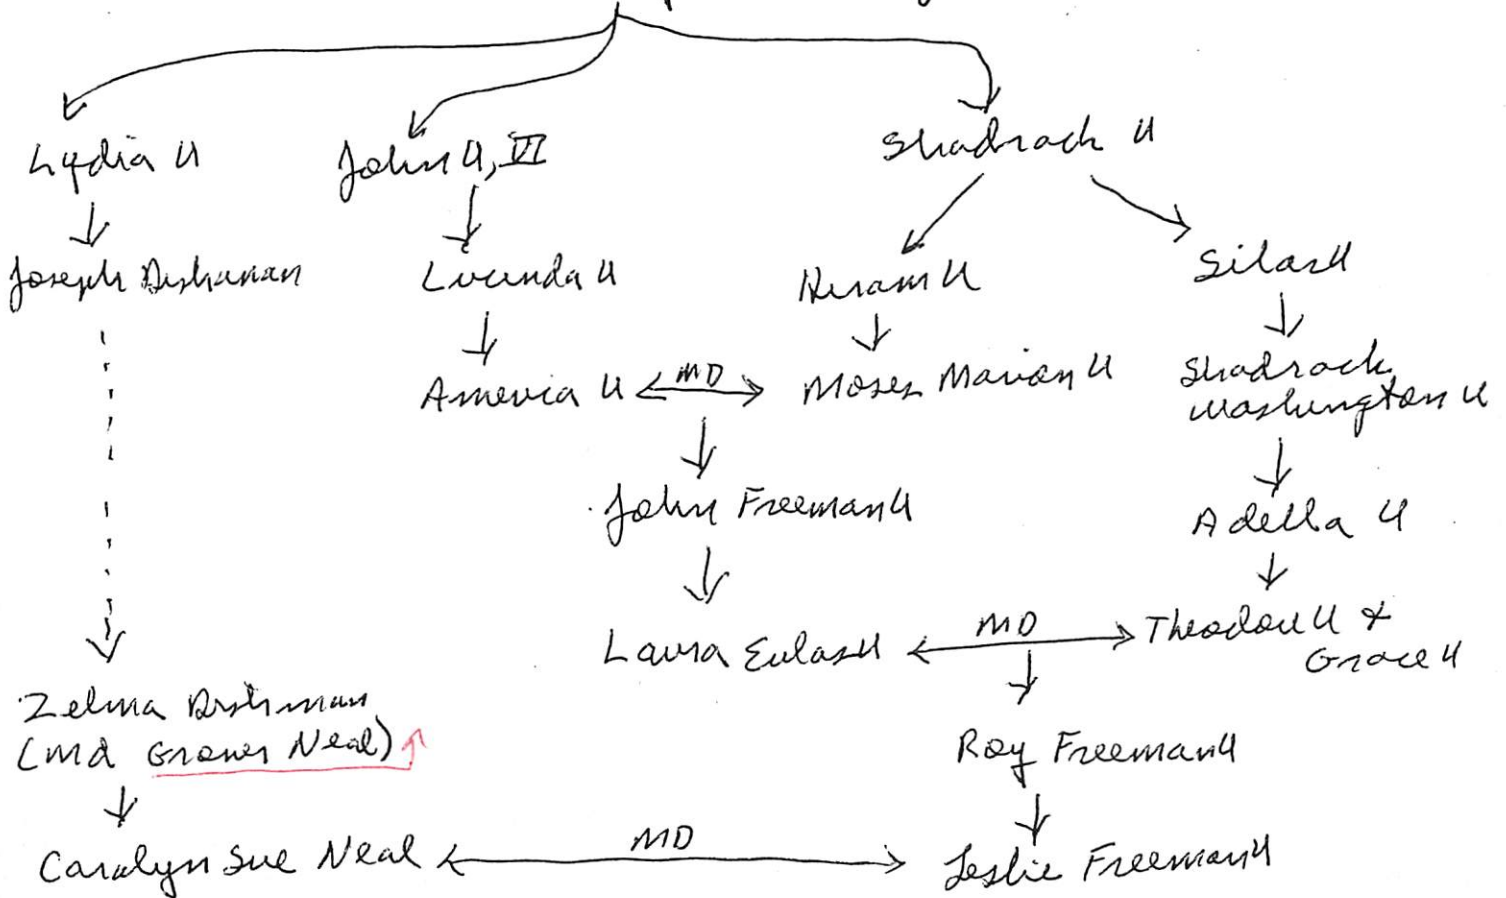 Lydia U
John U, VI
Shadrach U
Joseph
Lucinda U
Hiram U
Silas U
America U
MD
Moses Marion U
Shadrack
Washington U
John Freeman U
Adella U
Laura Eulas U
MD
Theodore U &
Grace U
Zelma Dishman
(Md Grover Neal)
Roy Freeman U
Carolyn Sue Neal
MD
Leslie Freeman U